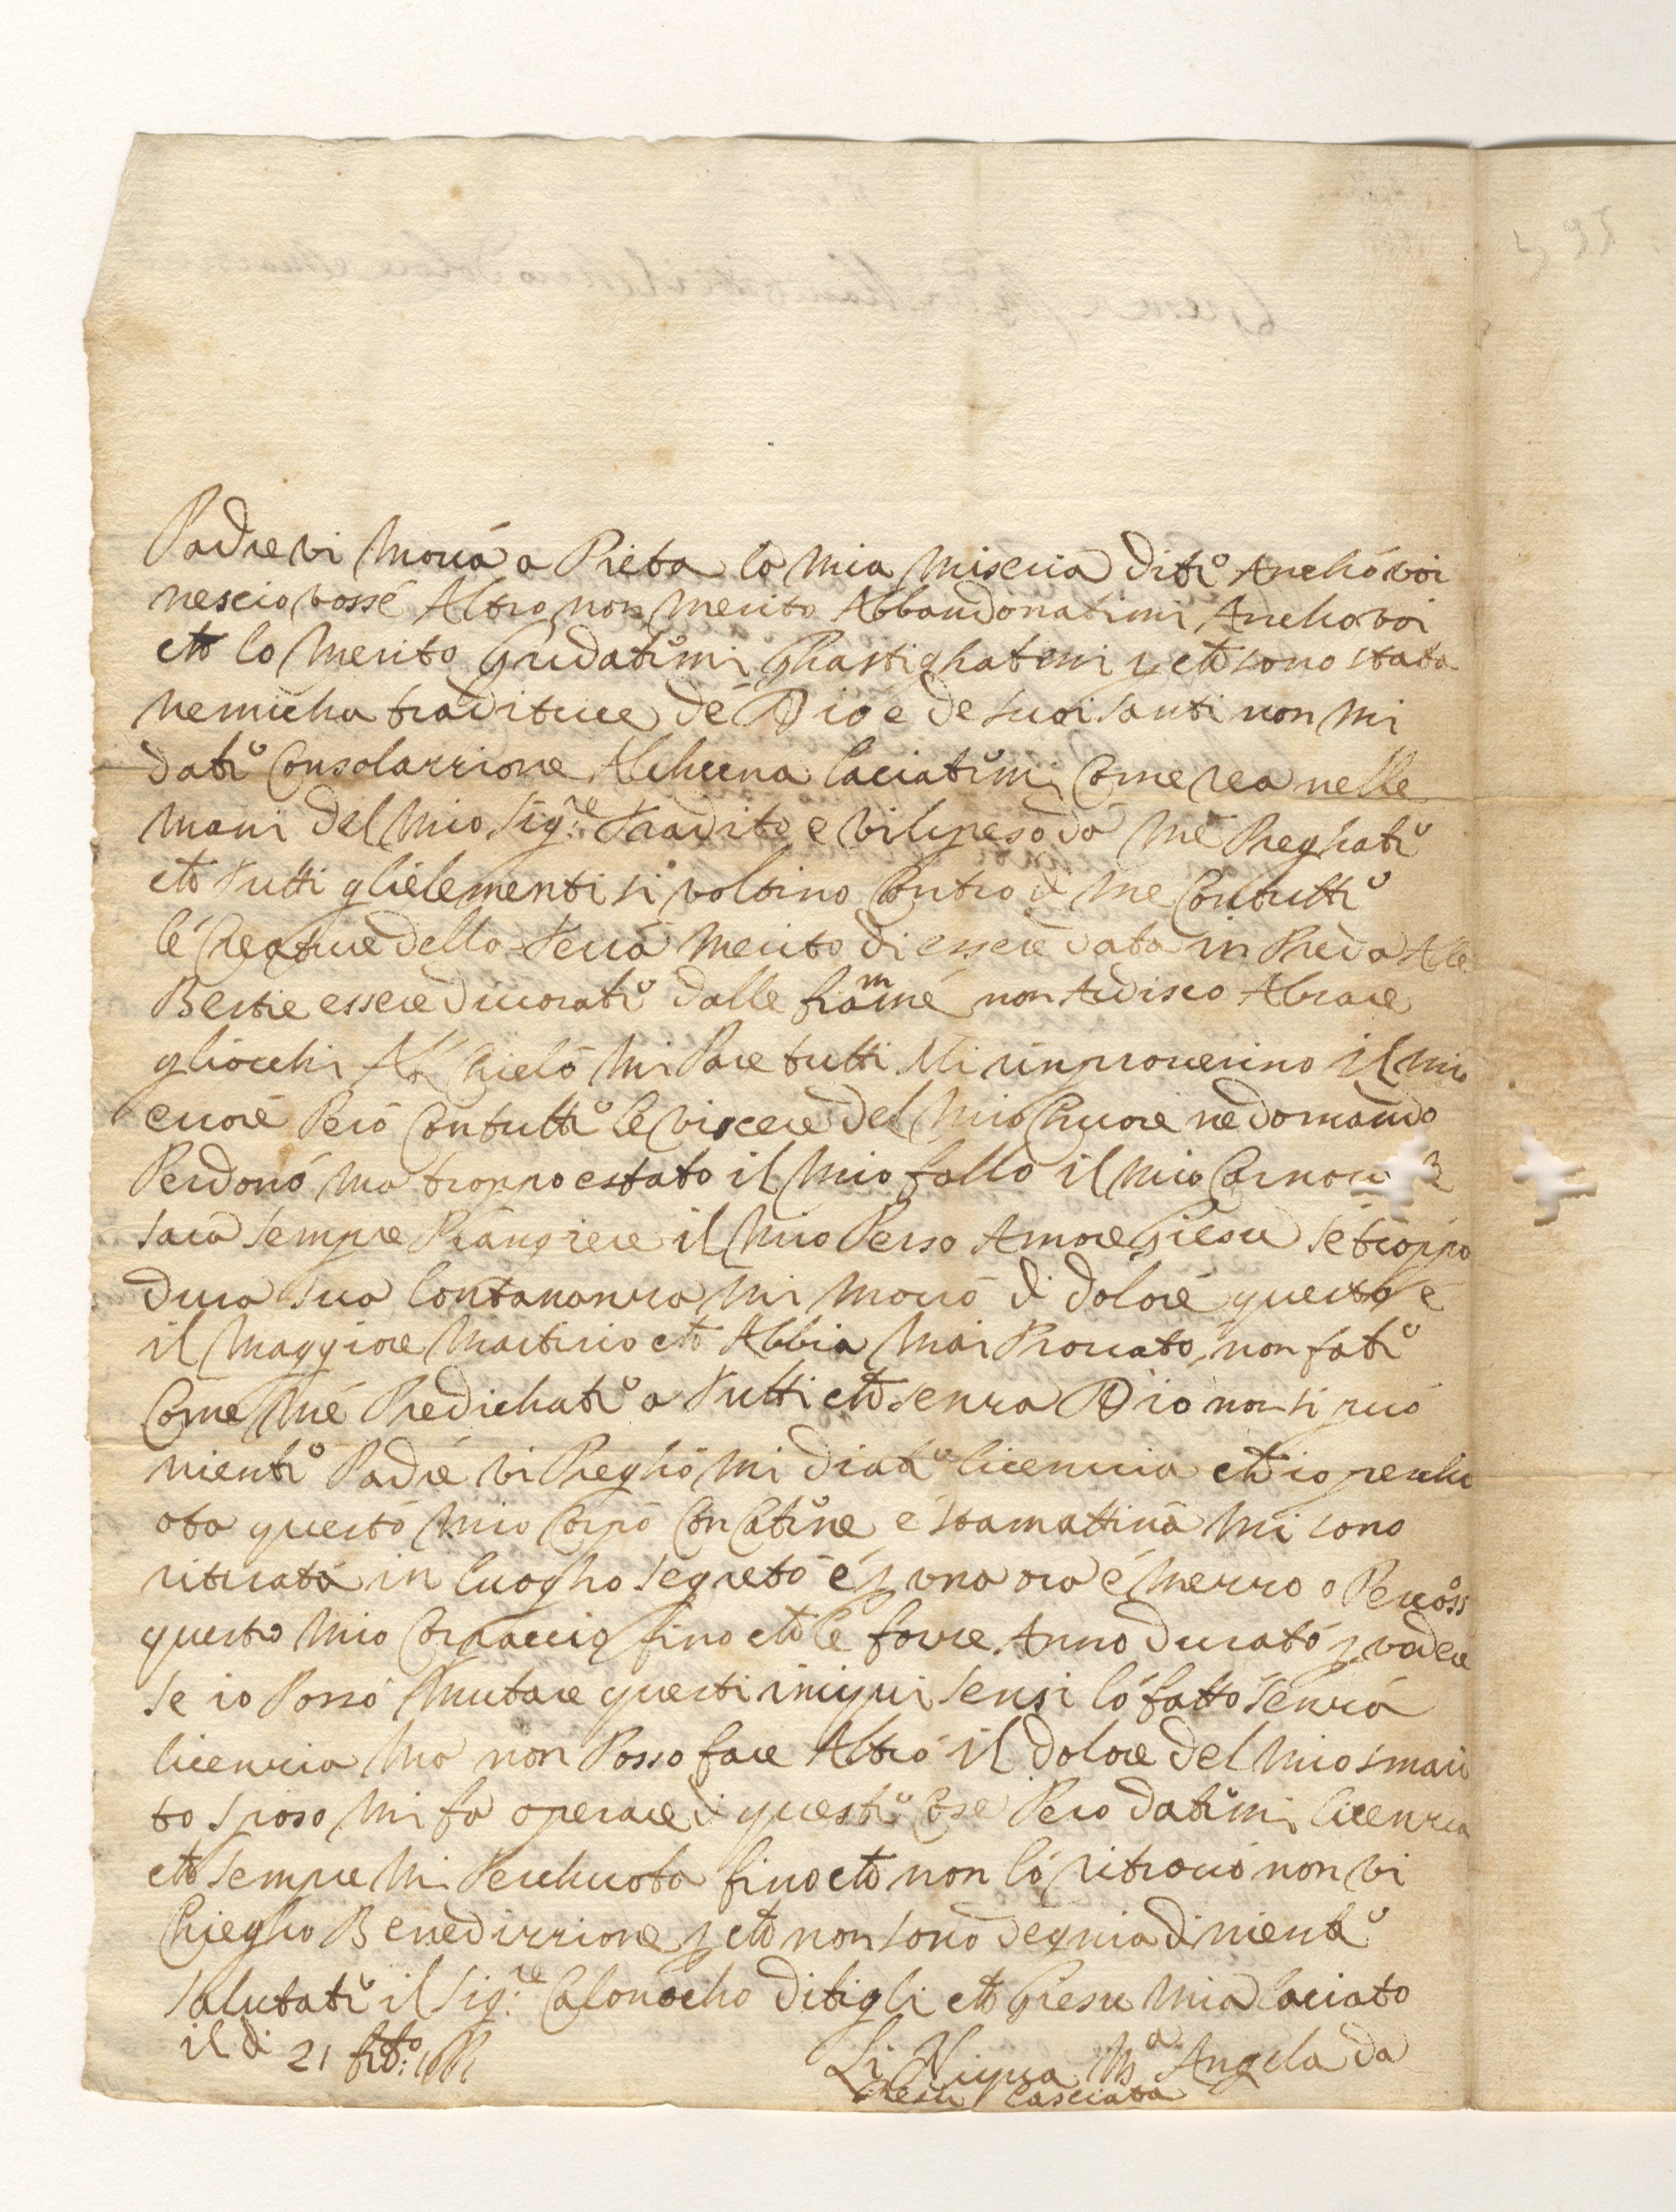 Padre vi moua a Pieta la mia miseria diti Anchó voi
nescio vossé Altro non merito Abbandonatimi Anchora voi
che lo merito Gridatimi Ghastighatemi p che sono stata
nemicha traditrice de Dio e de suoi santi non mi
dati Consolazzione Alchuna laciatimi Come rea nelle
mani del mio Sig.re Tradito e vilipeso da me Preghati
che Tutti glielementi si voltino Contro di me Contutti
lé Creature della Terra merito di essere data in Preda Alle
Bestie essere diuorati dalle fiamme non Ardisco Alzare
gliocchi Al Chielo mi Pare tutti Mi rinprouerino il mio
errore Però Contutti le viscere del mio Chuore ne domando
Perdonó ma troppo estato il mio fallo il mio
sara sempre Piangiere il mio Perso Amore Giesu se troppo
dura sua lontananza mi morró di dolore questo é
il maggiore martirio che Abbia mai Prouato, non fati
Come mé Predichati a Tutti che senza Dio non si puó
nienti Padre vi Preghó mi diati licenzia che io perchu
ota questó mio Corpó Con Catine é stamattina mi sono
ritirata in luogho segretó é p una ora é mezzo o Percoss
questo mio Corpaccio fino che le forze Anno durató p vedere
se io Possó mutare questi iniqui sensi ló fattó senza
licenzia ma non Posso fare Altró il dolore del mio smari
to sposo mi fa operare di questi Cose Pero datimi licenzia
che sempre mi Perchuota fino che non ló ritrouó non vi
Chiegho Benedizzione p che non sono degnia di nienti
Salutati il Sig.re Calonacho Ditigli che Giesu mia laciato
il di 21
Angela da
Giesu lasciata